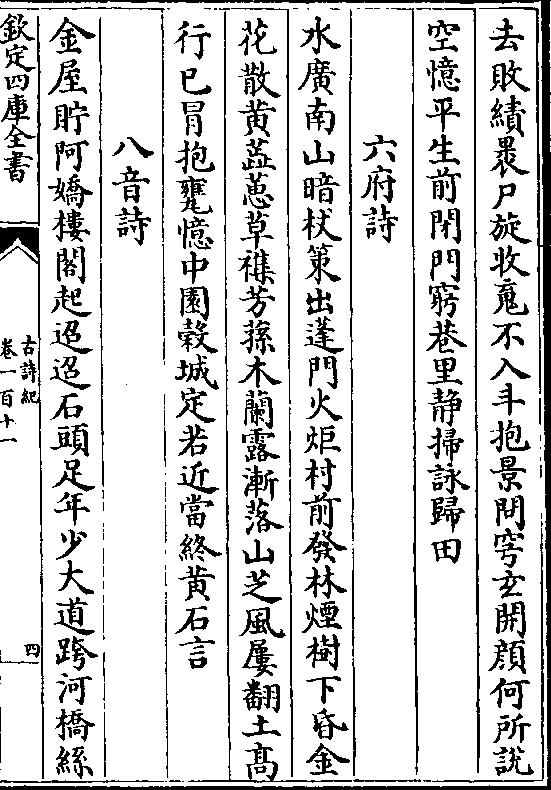 去敗績褁尸旋收䰟不入斗抱景問穹玄開顔何所說
空憶平生前閉門窮巷里静掃詠歸田
六府詩
水廣南山暗杖䇿出蓬門火炬村前發林煙樹下昏金
花散黄蕋蕙草襍芳蓀木蘭露漸落山芝風屢翻土髙
行已冒抱甕憶中園穀城定若近當終黄石言
八音詩
金屋貯阿嬌樓閣起迢迢石頭足年少大道跨河橋絲
欽定四庫全書
古詩紀
卷一百十一
四